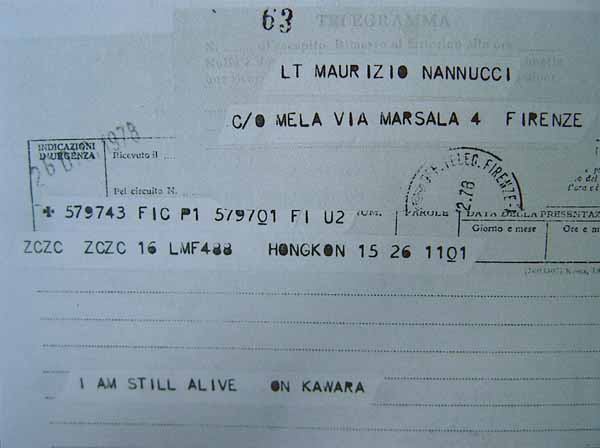 63
TELEGRAMMA
LT MAURIZIO NANNUCCI
C/O MELA VIA MARSALA 4 FIRENZE
INDICAZIONI
D'URGENZA
26 1978
Ricevuto il
Pel circuito N.
TELEG. FIRENZE
2.78
✠ 579743 FIC P1 579701 FI U2
PAROLE
DATA DELLA PRESENTAZ
Giorno e mese
Ore e m
ZCZC ZCZC 16 LMF488 HONGKON 15 26 1101
I AM STILL ALIVE ON KAWARA